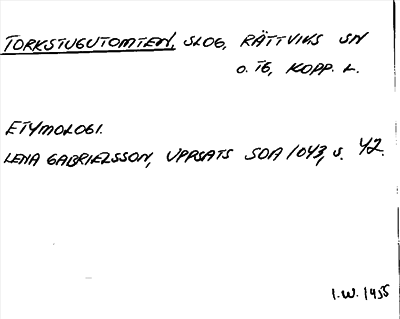 TORKSTUGUTOMTEN, SLOG, RÄTTVIKS SN
O. TG, KOPP. L.
ETYMOLOGI.
LENA GABRIELSSON, UPPSATS SOA 1043, S. 42.
I.W. 1955